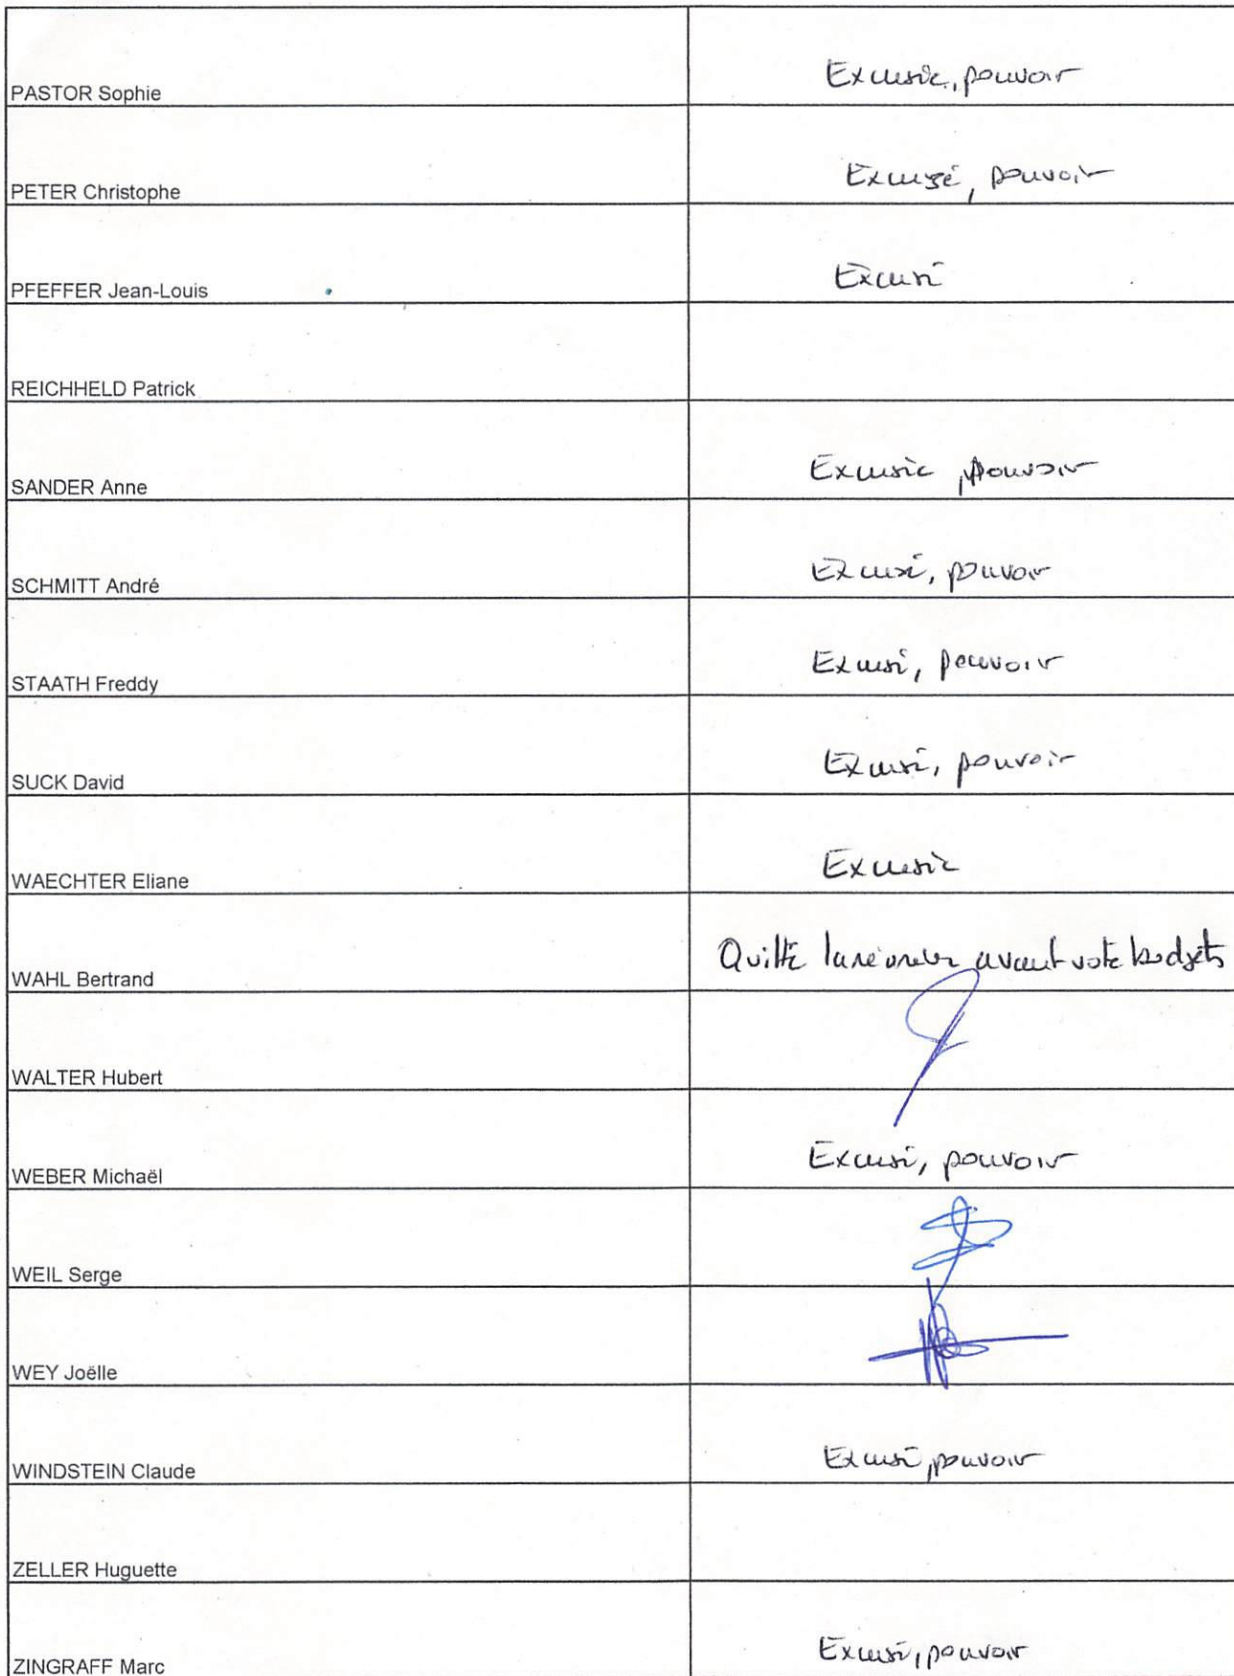 PASTOR Sophie Excusée, pouvoir
PETER Christophe Excusé, pouvoir
PFEFFER Jean-Louis Excusé
REICHHELD Patrick
SANDER Anne Excusée, pouvoir
SCHMITT André Excusé, pouvoir
STAATH Freddy Excusé, pouvoir
SUCK David Excusé, pouvoir
WAECHTER Eliane Excusée
WAHL Bertrand Quitte la réunion avant vote budgets
WALTER Hubert
WEBER Michaël Excusé, pouvoir
WEIL Serge
WEY Joëlle
WINDSTEIN Claude Excusé, pouvoir
ZELLER Huguette
ZINGRAFF Marc Excusé, pouvoir